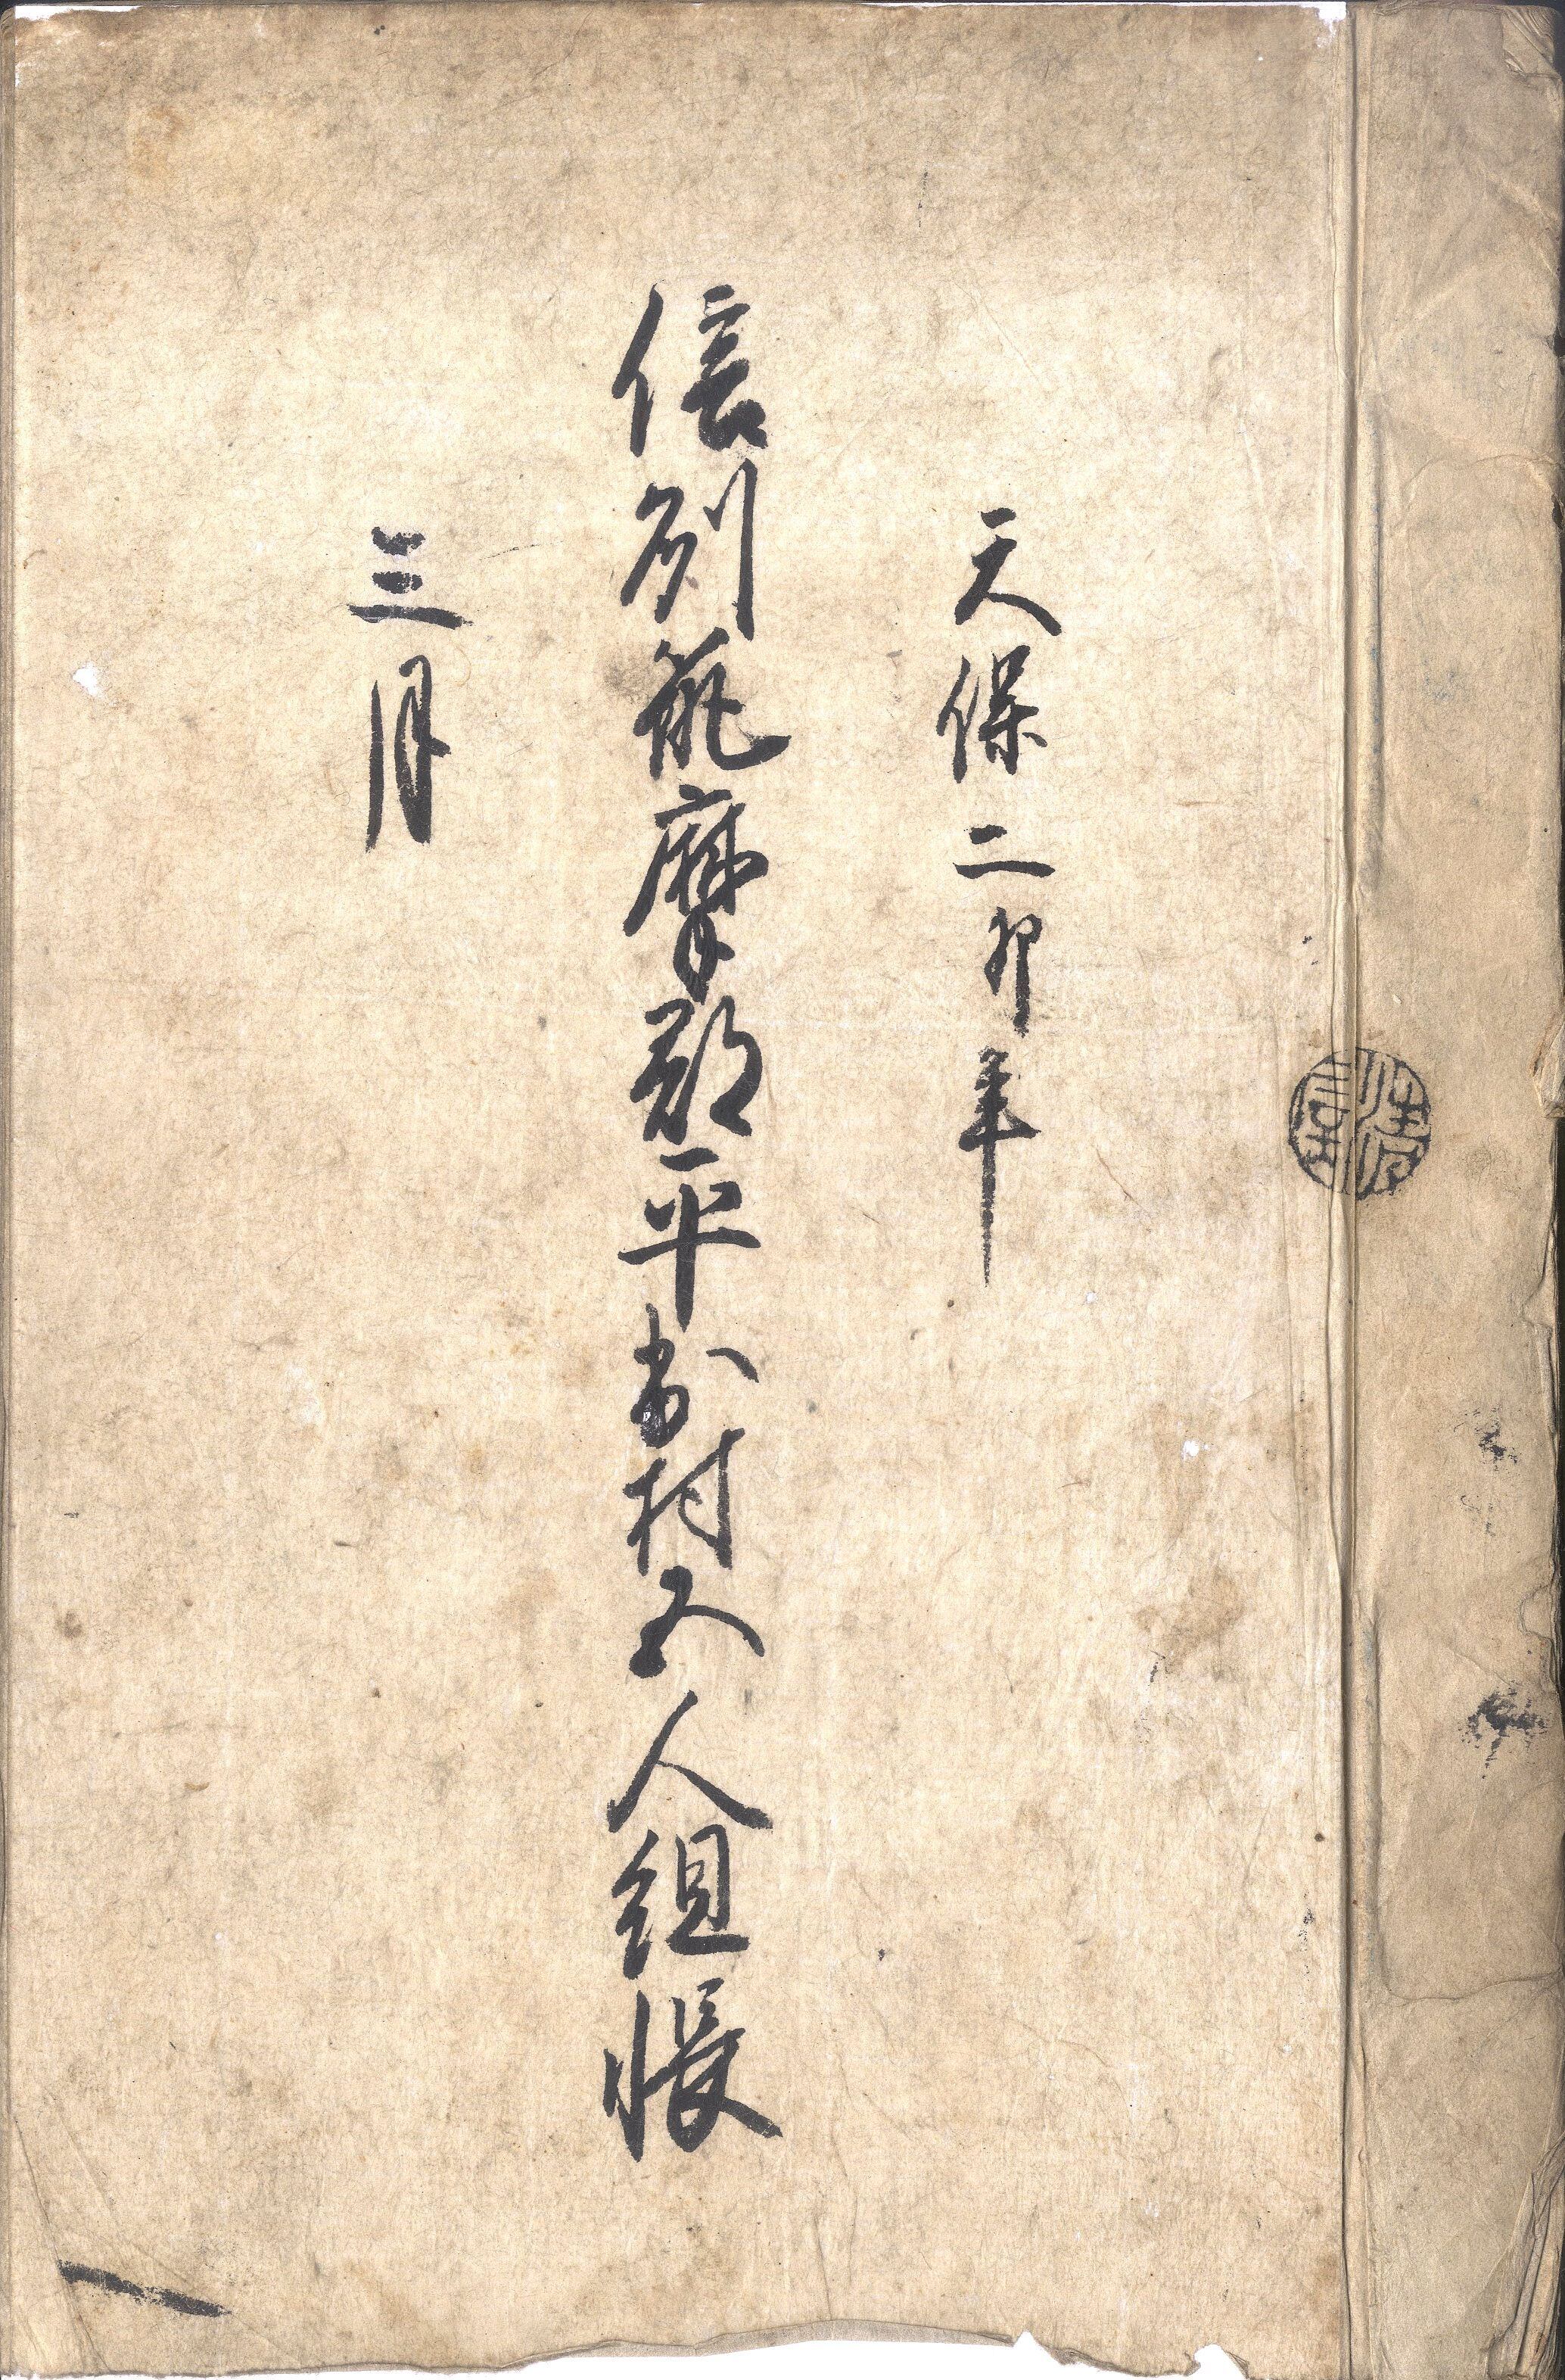 天保二卯年
信州筑摩郡平出村五人組帳
三月